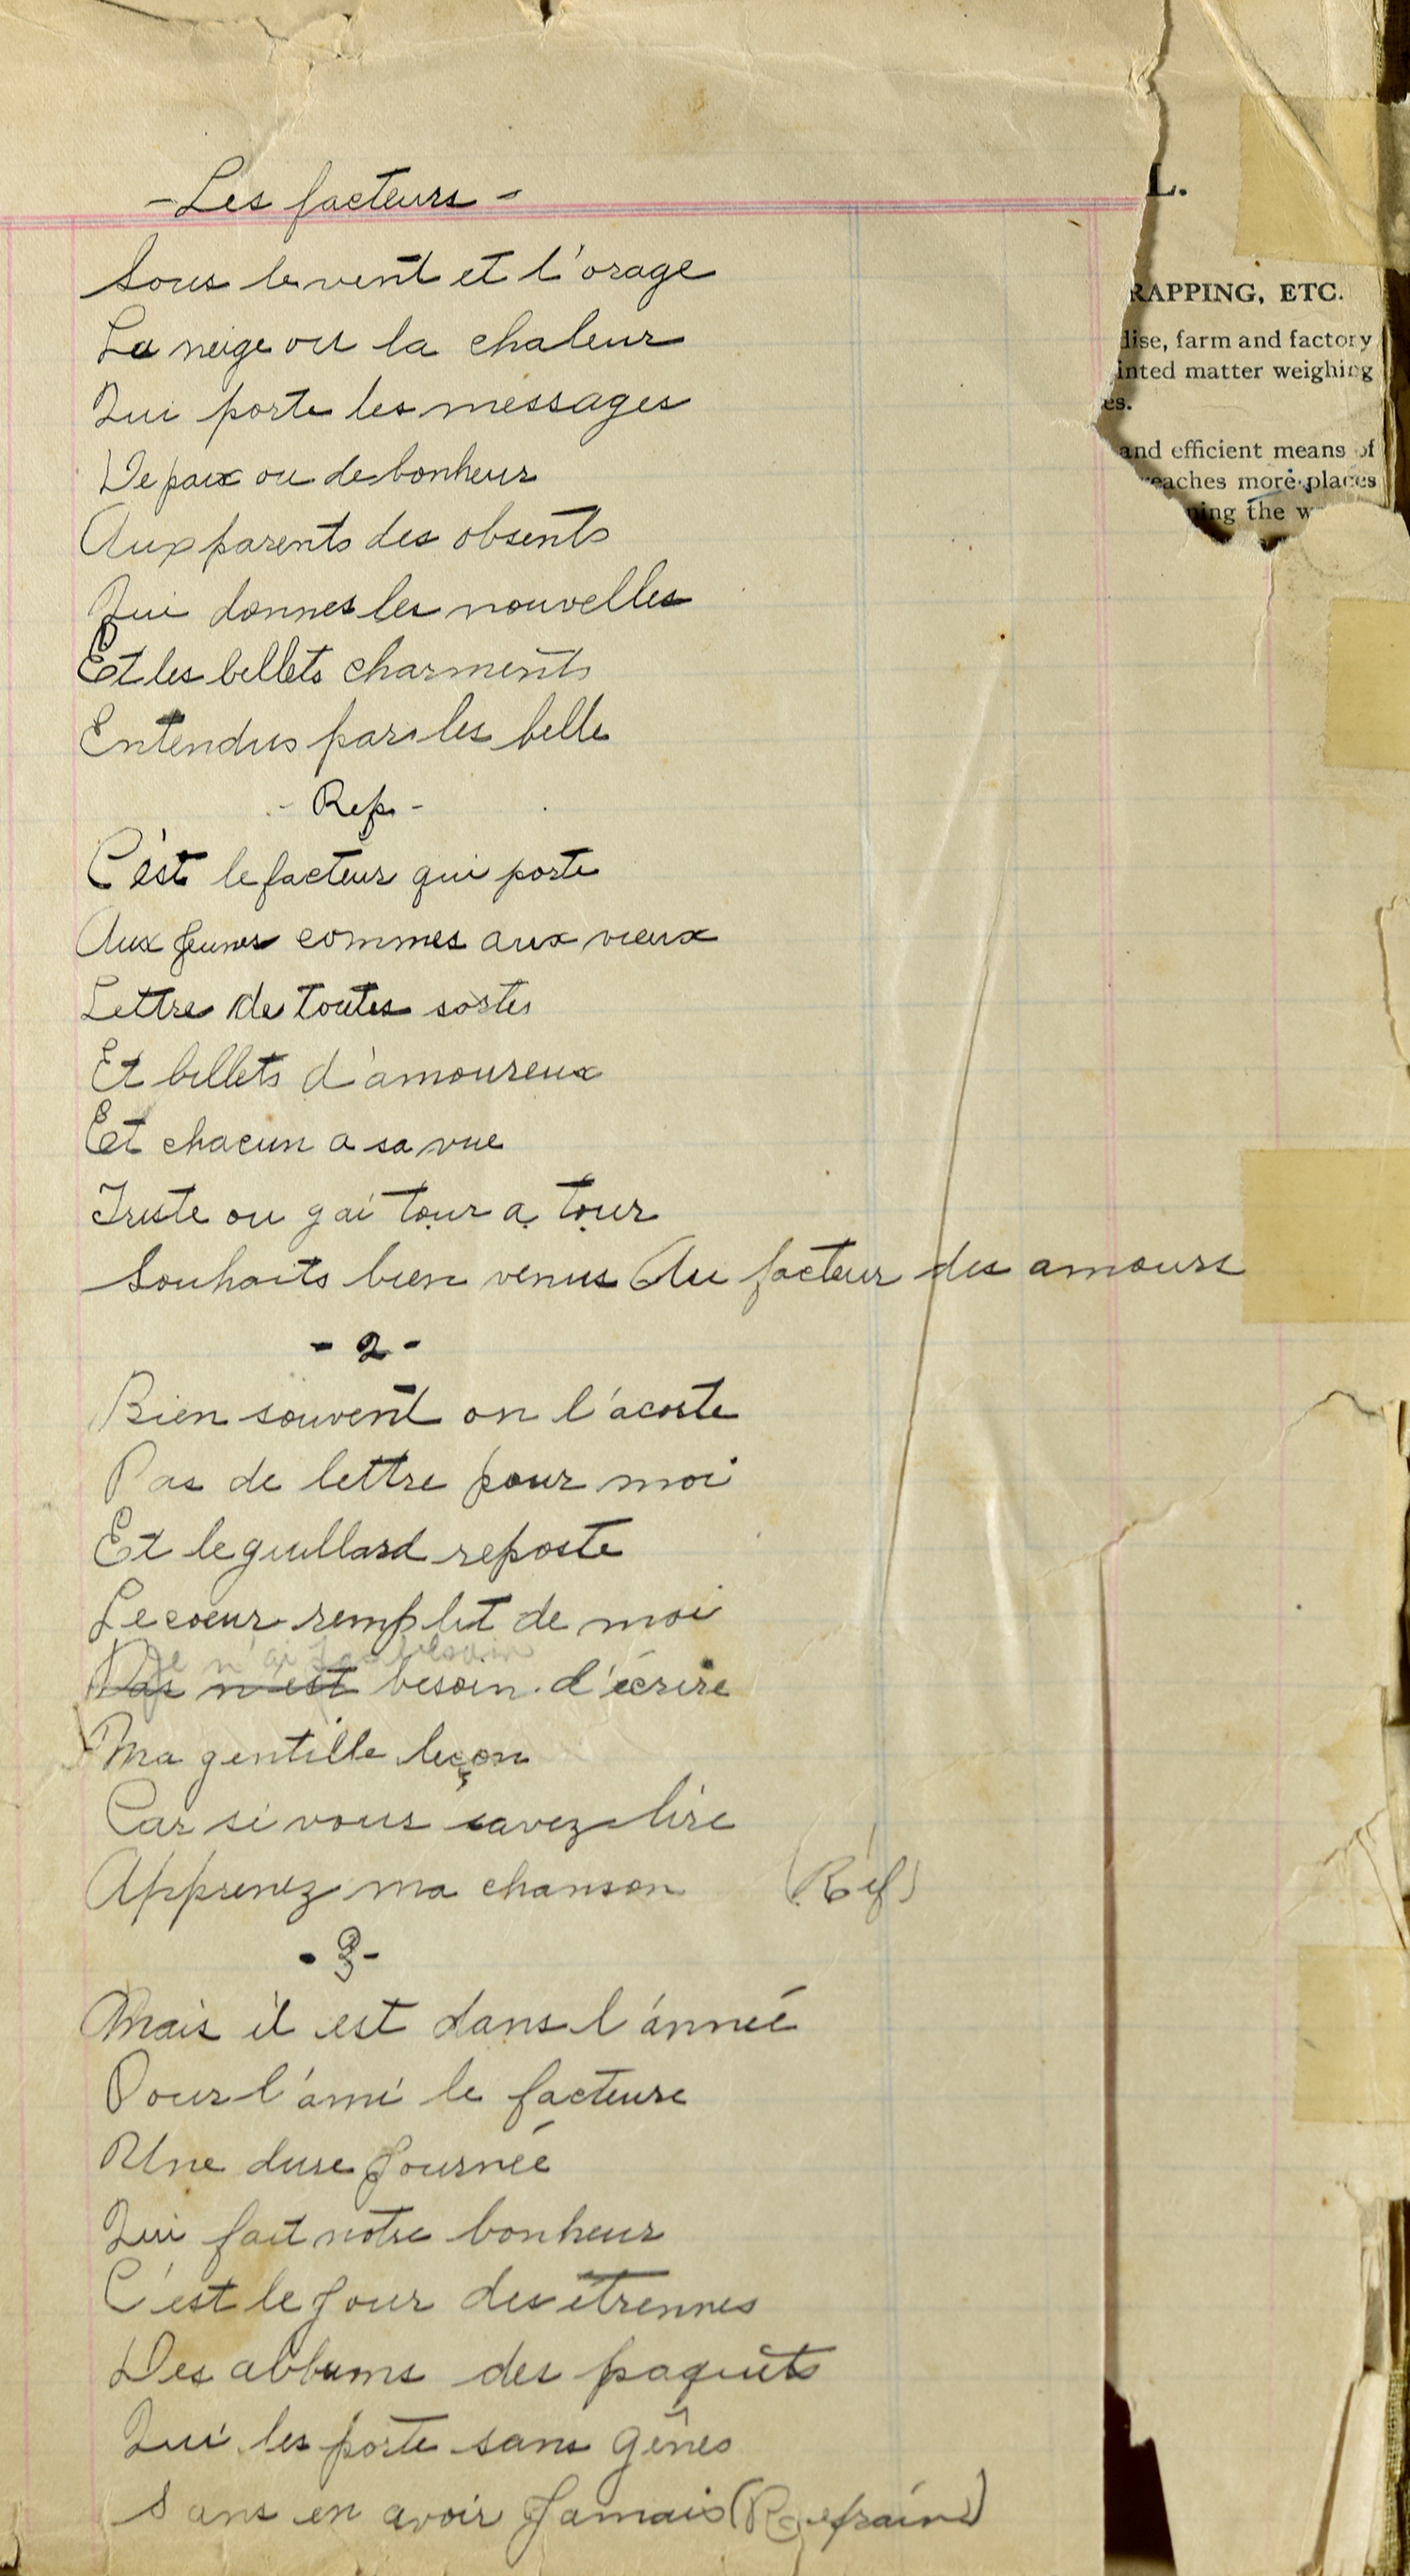 - Les facteurs -
Sous le vent et l'orage
La neige ou la chaleur
Qui porte les messages
De paix ou de bonheur
Aux parents des absents
Qui donnes les nouvelles
Et les billets charments
Entendus par les belle
- Ref -
C'est le facteur qui porte
Aux jeunes commes aux vieux
Lettre de toutes sortes
Et billets d'amoureux
Et chacun a sa vue
Triste ou gai tour a tour
Souhaits bien venus Au facteur des amours
- 2 -
Bien souvent on l'acoste
Pas de lettre pour moi
Et le guillard reposte
Le coeur remplit de moi
Je n'ai pas besoin
Pas n'est besoin d'écrire
Ma gentille leçon
Car si vous savez lire
Apprenez ma chanson (Réf)
- 3 -
Mais il est dans l'anneé
Pour l'ami le facteure
Une dure Journeé
Qui fait notre bonheur
C'est le Jour des étrennes
Des albums des paquets
Qui les porte sans gênes
Sans en avoir Jamais (Refrain)
L.
RAPPING, ETC.
lise, farm and factory
inted matter weighing
es.
and efficient means of
reaches more places
ning the w